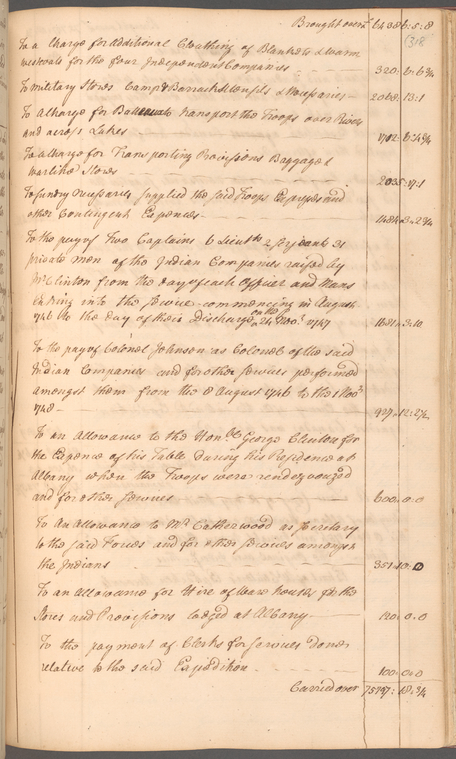 Brought over £ 64386:5:8
(318)
To a Charge for additional Cloathing of Blankets & warm
westcoats for the four Independent Companies — 320:6:6¾
To military Stores Camp & Barrack Utensils & Necessaries — 2068:13:1
To a Charge for Batteaus to transport the Troops over Rivers
and across Lakes — 1702:6:4¾
To a Charge for Transporting Provisions Baggage &
warlike Stores — 2035:17:1
To sundry necessaries supplied the said Troops Expresses and
other Contingent Expences — 1484:3:2¾
To the pay of Two Captains 6 Lieuts 2 Serjeants 31
private men of the Indian Companies raised by
Mr Clinton from the day of each Officer and Mans
Entring into the Service commencing in August
1746 to the day of their Discharge on the 24 Novr 1747 — 1681:3:10
To the pay of Colonel Johnson as Colonel of the said
Indian Companies and for other Services performed
amongst them from the 8 August 1746 to the 1 Novr
1748 — 927:12:2½
To an Allowance to the Honble George Clinton for
the Expence of his Table During his Residence at
Albany when the Troops were rendezvouzed
and for other Services — 600:0:0
To An allowance to Mr Catherwood as Secretary
to the said Forces and for other Services amongst
the Indians — 351:10:0
To an Allowance for Hire of Ware houses for the
Stores and Provisions lodged at Albany — 120:0:0
To the payment of Clerks for Services done
relative to the said Expedition — 100:0:0
Carried over 75777:18:¾